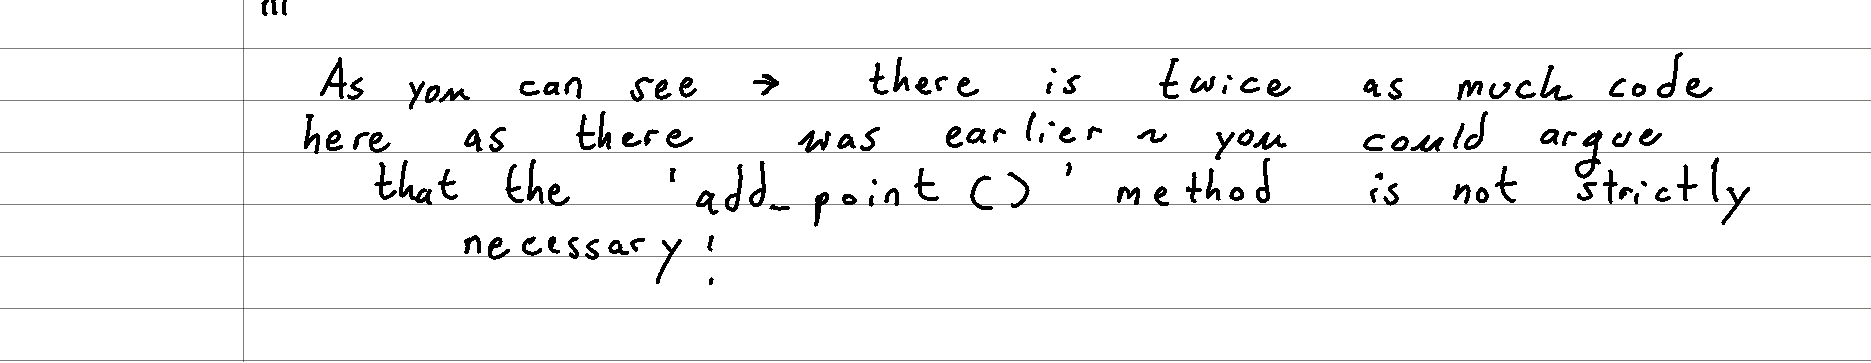 As you can see → there is twice as much code
here as there was earlier ~ you could argue
that the 'add_point()' method is not strictly
necessary!